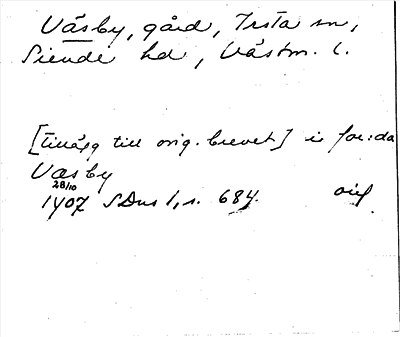 Väsby, gård, Irsta sn,
Siende hd, Västm. l.
[tillägg till orig. brevet] i for:da
Vasby
28/10
1407 SDns 1, s. 684. orig